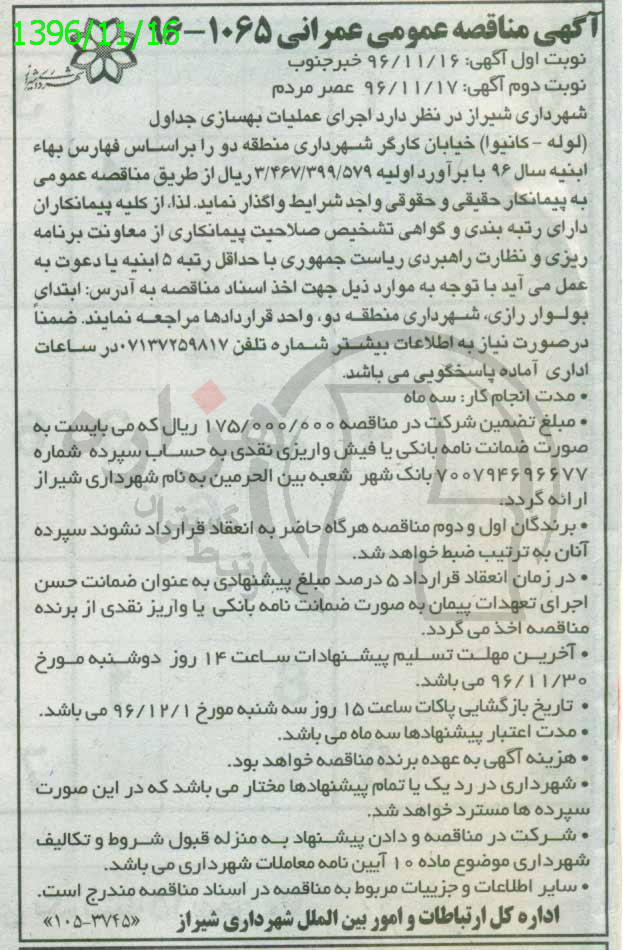 آگهی مناقصه عمومی عمرانی ۱۰۶۵-۹۶
1396/11/16
نوبت اول آگهی: ۹۶/۱۱/۱۶ خبرجنوب
نوبت دوم آگهی: ۹۶/۱۱/۱۷ عصر مردم
شهرداری شیراز
شهرداری شیراز در نظر دارد اجرای عملیات بهسازی جداول
(لوله - کانیوا) خیابان کارگر شهرداری منطقه دو را براساس فهارس بهاء
ابنیه سال ۹۶ با برآورد اولیه ۳/۴۶۷/۳۹۹/۵۷۹ ریال از طریق مناقصه عمومی
به پیمانکار حقیقی و حقوقی واجد شرایط واگذار نماید. لذا، از کلیه پیمانکاران
دارای رتبه بندی و گواهی تشخیص صلاحیت پیمانکاری از معاونت برنامه
ریزی و نظارت راهبردی ریاست جمهوری با حداقل رتبه ۵ ابنیه یا دعوت به
عمل می آید با توجه به موارد ذیل جهت اخذ اسناد مناقصه به آدرس: ابتدای
بولوار رازی، شهرداری منطقه دو، واحد قراردادها مراجعه نمایند. ضمناً
درصورت نیاز به اطلاعات بیشتر شماره تلفن ۰۷۱۳۷۲۵۹۸۱۷در ساعات
اداری آماده پاسخگویی می باشد.
• مدت انجام کار: سه ماه
• مبلغ تضمین شرکت در مناقصه ۱۷۵/۰۰۰/۰۰۰ ریال که می بایست به
صورت ضمانت نامه بانکی یا فیش واریزی نقدی به حساب سپرده شماره
۷۰۰۷۹۴۶۹۶۶۷۷ بانک شهر شعبه بین الحرمین به نام شهرداری شیراز
ارائه گردد.
• برندگان اول و دوم مناقصه هرگاه حاضر به انعقاد قرارداد نشوند سپرده
آنان به ترتیب ضبط خواهد شد.
• در زمان انعقاد قرارداد ۵ درصد مبلغ پیشنهادی به عنوان ضمانت حسن
اجرای تعهدات پیمان به صورت ضمانت نامه بانکی یا واریز نقدی از برنده
مناقصه اخذ می گردد.
• آخرین مهلت تسلیم پیشنهادات ساعت ۱۴ روز دوشنبه مورخ
۹۶/۱۱/۳۰ می باشد.
• تاریخ بازگشایی پاکات ساعت ۱۵ روز سه شنبه مورخ ۹۶/۱۲/۱ می باشد.
• مدت اعتبار پیشنهادها سه ماه می باشد.
• هزینه آگهی به عهده برنده مناقصه خواهد بود.
• شهرداری در رد یک یا تمام پیشنهادها مختار می باشد که در این صورت
سپرده ها مسترد خواهد شد.
• شرکت در مناقصه و دادن پیشنهاد به منزله قبول شروط و تکالیف
شهرداری موضوع ماده ۱۰ آیین نامه معاملات شهرداری می باشد.
• سایر اطلاعات و جزییات مربوط به مناقصه در اسناد مناقصه مندرج است.
اداره کل ارتباطات و امور بین الملل شهرداری شیراز «۱۰۵-۳۷۴۵»
هزاره